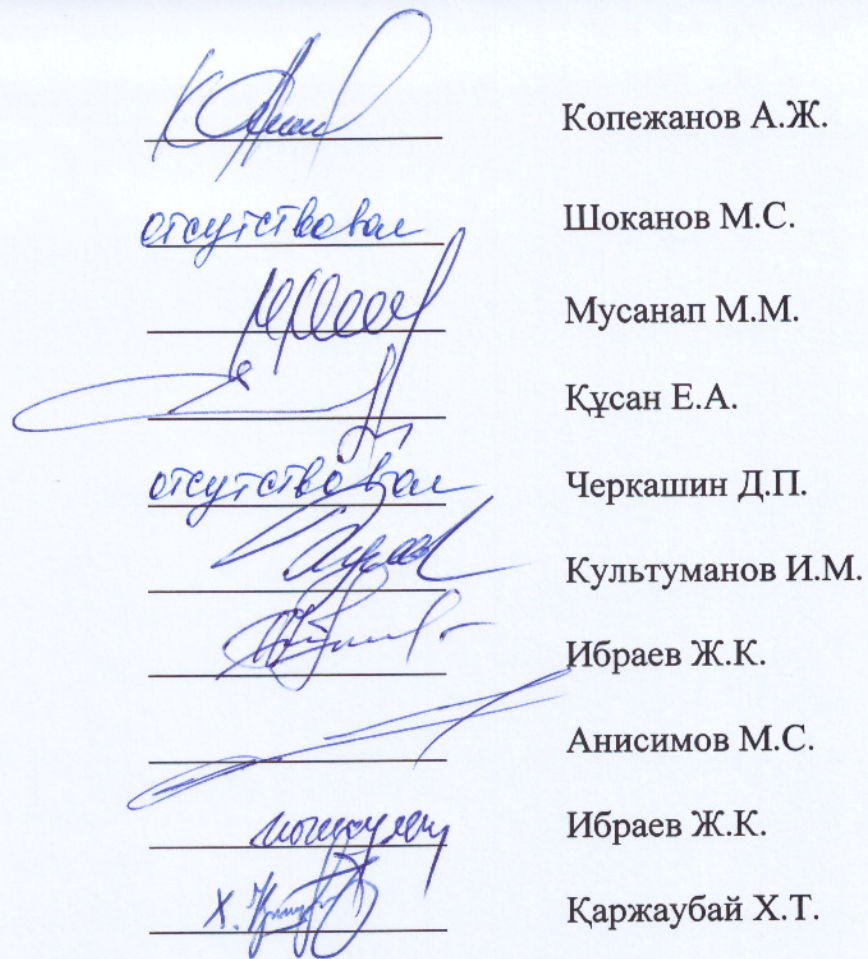 Копежанов А.Ж.
отсутствовал Шоканов М.С.
Мусанап М.М.
Құсан Е.А.
отсутствовал Черкашин Д.П.
Культуманов И.М.
Ибраев Ж.К.
Анисимов М.С.
Ибраев Ж.К.
Қаржаубай Х.Т.